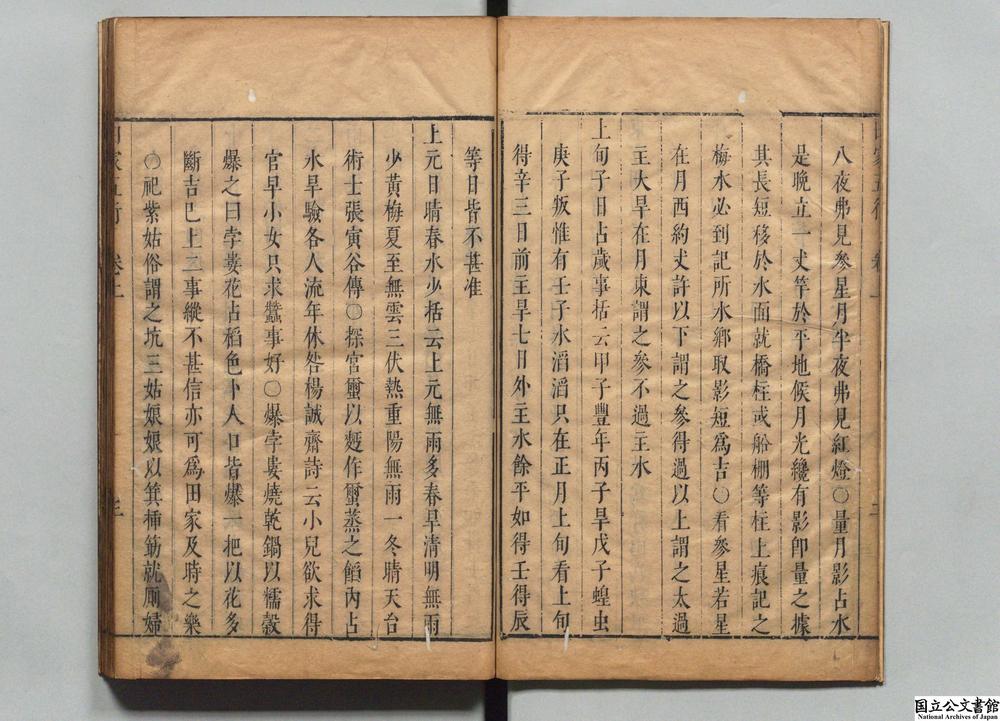 八夜弗見參星月半夜弗見紅燈〇量月影占水
是晚立一丈竿於平地候月光纔有影卽量之據
其長短移於水面就橋柱或船棚等柱上痕記之
梅水必到記所水鄉取影短爲吉〇看參星若星
在月西約丈許以下謂之參得過以上謂之太過
主大旱在月東謂之參不過主水
上旬子日占歲事括云甲子豐年丙子旱戊子蝗虫
庚子叛惟有壬子水滔滔只在正月上旬看上旬
得辛三日前主旱七日外主水餘平如得壬得辰
等日皆不甚准
上元日晴春水少括云上元無雨多春旱清明無雨
少黃梅夏至無雲三伏熱重陽無雨一冬晴天台
術士張寅谷傳〇探官璽以麪作璽蒸之餡內占
水旱驗各人流年休咎楊誠齋詩云小兒欲求得
官早小女只求蠶事好〇爆孛婁燒乾鍋以糯穀
爆之曰孛婁花占稻色卜人口皆爆一把以花多
斷吉已上二事縱不甚信亦可爲田家及時之樂
〇祀紫姑俗謂之坑三姑娘娘以箕揷筯就厠婦
田家五行 卷上 三
国立公文書館
National Archives of Japan